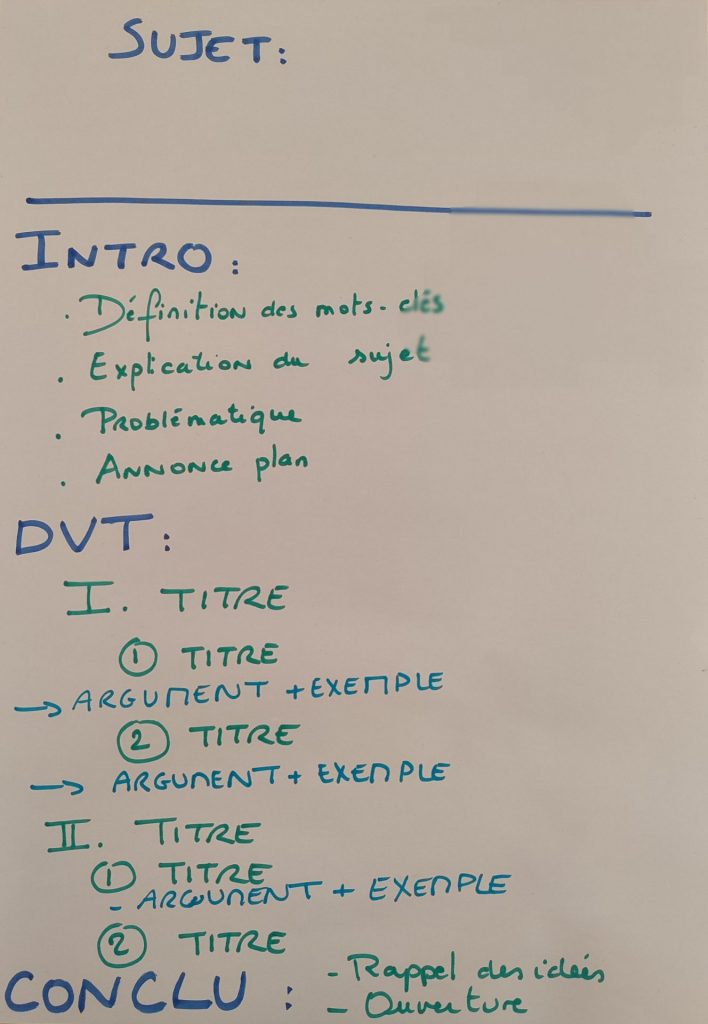 SUJET:
INTRO:
. Définition des mots-clés
. Explication du sujet
. Problématique
. ANNONCE plan
DVT:
I. TITRE
① TITRE
→ ARGUMENT + EXEMPLE
② TITRE
→ ARGUMENT + EXEMPLE
II. TITRE
① TITRE
- ARGUMENT + EXEMPLE
② TITRE
CONCLU :
- Rappel des idées
- Ouverture